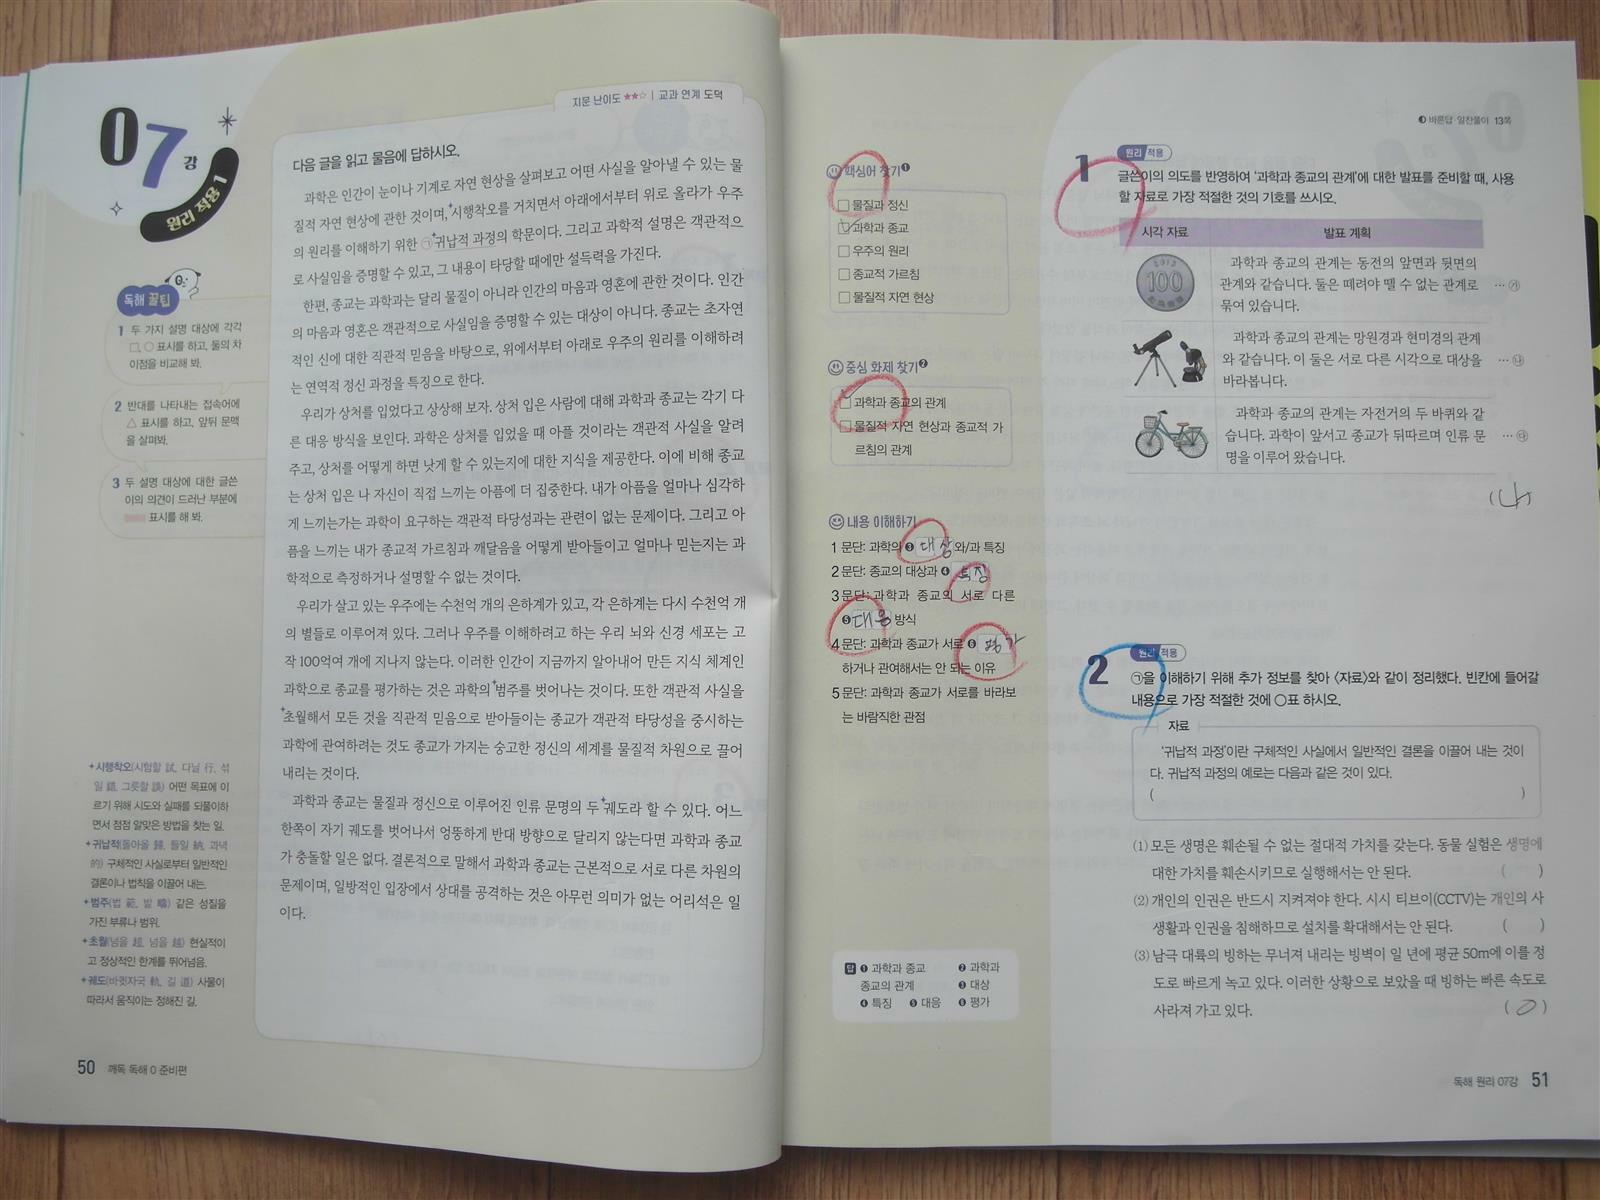 07강
원리 적용 1
지문 난이도 ★★☆ | 교과 연계 도덕
독해 꿀팁
1 두 가지 설명 대상에 각각
□, ○ 표시를 하고, 둘의 차
이점을 비교해 봐.
2 반대를 나타내는 접속어에
△ 표시를 하고, 앞뒤 문맥
을 살펴봐.
3 두 설명 대상에 대한 글쓴
이의 의견이 드러난 부분에
표시를 해 봐.
다음 글을 읽고 물음에 답하시오.
과학은 인간이 눈이나 기계로 자연 현상을 살펴보고 어떤 사실을 알아낼 수 있는 물
질적 자연 현상에 관한 것이며, +시행착오를 거치면서 아래에서부터 위로 올라가 우주
의 원리를 이해하기 위한 ㉠+귀납적 과정의 학문이다. 그리고 과학적 설명은 객관적으
로 사실임을 증명할 수 있고, 그 내용이 타당할 때에만 설득력을 가진다.
한편, 종교는 과학과는 달리 물질이 아니라 인간의 마음과 영혼에 관한 것이다. 인간
의 마음과 영혼은 객관적으로 사실임을 증명할 수 있는 대상이 아니다. 종교는 초자연
적인 신에 대한 직관적 믿음을 바탕으로, 위에서부터 아래로 우주의 원리를 이해하려
는 연역적 정신 과정을 특징으로 한다.
우리가 상처를 입었다고 상상해 보자. 상처 입은 사람에 대해 과학과 종교는 각기 다
른 대응 방식을 보인다. 과학은 상처를 입었을 때 아플 것이라는 객관적 사실을 알려
주고, 상처를 어떻게 하면 낫게 할 수 있는지에 대한 지식을 제공한다. 이에 비해 종교
는 상처 입은 나 자신이 직접 느끼는 아픔에 더 집중한다. 내가 아픔을 얼마나 심각하
게 느끼는가는 과학이 요구하는 객관적 타당성과는 관련이 없는 문제이다. 그리고 아
픔을 느끼는 내가 종교적 가르침과 깨달음을 어떻게 받아들이고 얼마나 믿는지는 과
학적으로 측정하거나 설명할 수 없는 것이다.
우리가 살고 있는 우주에는 수천억 개의 은하계가 있고, 각 은하계는 다시 수천억 개
의 별들로 이루어져 있다. 그러나 우주를 이해하려고 하는 우리 뇌와 신경 세포는 고
작 100억여 개에 지나지 않는다. 이러한 인간이 지금까지 알아내어 만든 지식 체계인
과학으로 종교를 평가하는 것은 과학의 +범주를 벗어나는 것이다. 또한 객관적 사실을
+초월해서 모든 것을 직관적 믿음으로 받아들이는 종교가 객관적 타당성을 중시하는
과학에 관여하려는 것도 종교가 가지는 숭고한 정신의 세계를 물질적 차원으로 끌어
내리는 것이다.
과학과 종교는 물질과 정신으로 이루어진 인류 문명의 두 +궤도라 할 수 있다. 어느
한쪽이 자기 궤도를 벗어나서 엉뚱하게 반대 방향으로 달리지 않는다면 과학과 종교
가 충돌할 일은 없다. 결론적으로 말해서 과학과 종교는 근본적으로 서로 다른 차원의
문제이며, 일방적인 입장에서 상대를 공격하는 것은 아무런 의미가 없는 어리석은 일
이다.
+시행착오(시험할 試, 다닐 行, 섞
일 錯, 그릇할 誤) 어떤 목표에 이
르기 위해 시도와 실패를 되풀이하
면서 점점 알맞은 방법을 찾는 일.
+귀납적(돌아올 歸, 들일 納, 과녁
的) 구체적인 사실로부터 일반적인
결론이나 법칙을 이끌어 내는.
+범주(법 範, 밭 疇) 같은 성질을
가진 부류나 범위.
+초월(넘을 超, 넘을 越) 현실적이
고 정상적인 한계를 뛰어넘음.
+궤도(바큇자국 軌, 길 道) 사물이
따라서 움직이는 정해진 길.
50 깨독 독해 0 준비편
핵심어 찾기❶
□ 물질과 정신
☑ 과학과 종교
□ 우주의 원리
□ 종교적 가르침
□ 물질적 자연 현상
중심 화제 찾기❷
☑ 과학과 종교의 관계
□ 물질적 자연 현상과 종교적 가
르침의 관계
내용 이해하기
1문단: 과학의 ❸ 대상 와/과 특징
2문단: 종교의 대상과 ❹ 특징
3문단: 과학과 종교의 서로 다른
❺ 대응 방식
4문단: 과학과 종교가 서로 ❻ 평가
하거나 관여해서는 안 되는 이유
5문단: 과학과 종교가 서로를 바라보
는 바람직한 관점
답 ❶ 과학과 종교 ❷ 과학과
종교의 관계 ❸ 대상
❹ 특징 ❺ 대응 ❻ 평가
바른답·알찬풀이 13쪽
1 원리 적용
글쓴이의 의도를 반영하여 '과학과 종교의 관계'에 대한 발표를 준비할 때, 사용
할 자료로 가장 적절한 것의 기호를 쓰시오.
시각 자료 발표 계획
100
과학과 종교의 관계는 동전의 앞면과 뒷면의
관계와 같습니다. 둘은 떼려야 뗄 수 없는 관계로 … ㉮
묶여 있습니다.
과학과 종교의 관계는 망원경과 현미경의 관계
와 같습니다. 이 둘은 서로 다른 시각으로 대상을 … ㉯
바라봅니다.
과학과 종교의 관계는 자전거의 두 바퀴와 같
습니다. 과학이 앞서고 종교가 뒤따르며 인류 문 … ㉰
명을 이루어 왔습니다.
(나)
2 원리 적용
㉠을 이해하기 위해 추가 정보를 찾아 〈자료〉와 같이 정리했다. 빈칸에 들어갈
내용으로 가장 적절한 것에 ○표 하시오.
자료
'귀납적 과정'이란 구체적인 사실에서 일반적인 결론을 이끌어 내는 것이
다. 귀납적 과정의 예로는 다음과 같은 것이 있다.
( )
(1) 모든 생명은 훼손될 수 없는 절대적 가치를 갖는다. 동물 실험은 생명에
대한 가치를 훼손시키므로 실행해서는 안 된다. ( )
(2) 개인의 인권은 반드시 지켜져야 한다. 시시 티브이(CCTV)는 개인의 사
생활과 인권을 침해하므로 설치를 확대해서는 안 된다. ( )
(3) 남극 대륙의 빙하는 무너져 내리는 빙벽이 일 년에 평균 50m에 이를 정
도로 빠르게 녹고 있다. 이러한 상황으로 보았을 때 빙하는 빠른 속도로
사라져 가고 있다. ( ○ )
독해 원리 07강 51